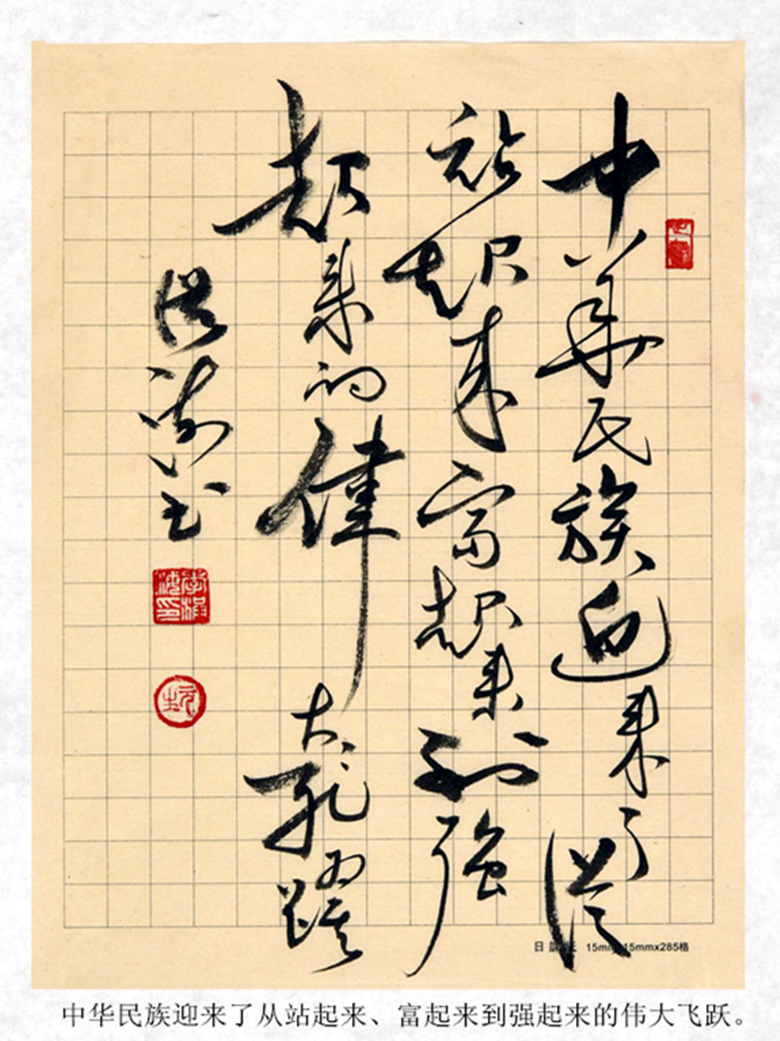 中華民族迎来了從
站起来富起来到強
起来的偉大飛躍
书
15mm 15mmx285格
中华民族迎来了从站起来、富起来到强起来的伟大飞跃。